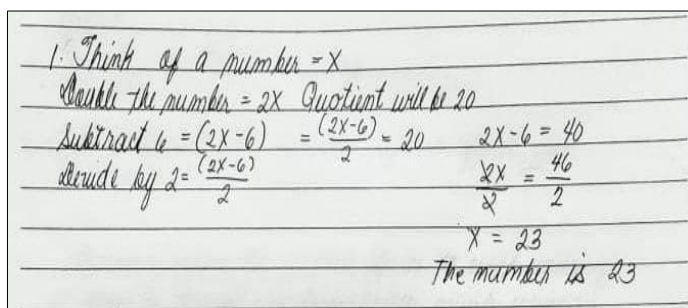 1. Think of a number = X
Double the number = 2X Quotient will be 20
Subtract 6 = (2X-6) = (2X-6)/2 = 20 2X-6 = 40
Devide by 2 = (2X-6)/2 2X/2 = 46/2
X = 23
The number is 23